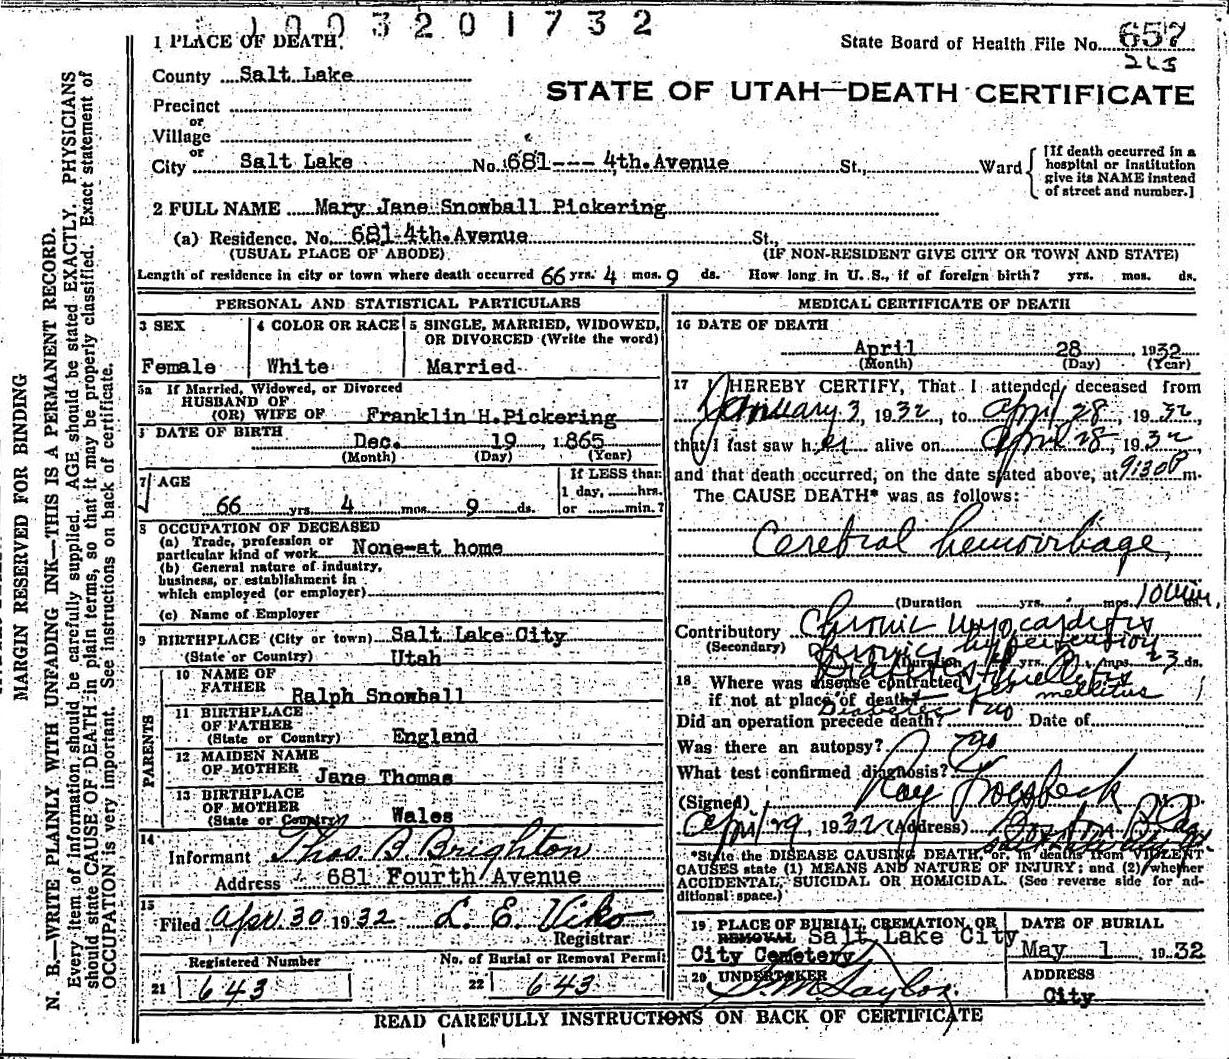 1003201732
1 PLACE OF DEATH.
State Board of Health File No. 657
263
County Salt Lake
STATE OF UTAH—DEATH CERTIFICATE
Precinct
or
Village
or
City Salt Lake No. 681--- 4th. Avenue St., Ward
[If death occurred in a hospital or institution give its NAME instead of street and number.]
2 FULL NAME Mary Jane Snowball Pickering
(a) Residence. No. 681-4th. Avenue St.
(USUAL PLACE OF ABODE) (IF NON-RESIDENT GIVE CITY OR TOWN AND STATE)
Length of residence in city or town where death occurred 66 yrs. 4 mos. 9 ds. How long in U. S., if of foreign birth? yrs. mos. ds.
PERSONAL AND STATISTICAL PARTICULARS
3 SEX
Female
4 COLOR OR RACE
White
5 SINGLE, MARRIED, WIDOWED,
OR DIVORCED (Write the word)
Married
5a If Married, Widowed, or Divorced
HUSBAND OF
(OR) WIFE OF Franklin H. Pickering
DATE OF BIRTH
Dec. 19, 1865
(Month) (Day) (Year)
7 AGE
66 yrs. 4 mos. 9 ds.
If LESS than
1 day, hrs.
or min.?
8 OCCUPATION OF DECEASED
(a) Trade, profession or
particular kind of work None-at home
(b) General nature of industry,
business, or establishment in
which employed (or employer)
(c) Name of Employer
9 BIRTHPLACE (City or town) Salt Lake City
(State or Country) Utah
PARENTS
10 NAME OF
FATHER Ralph Snowball
11 BIRTHPLACE
OF FATHER
(State or Country) England
12 MAIDEN NAME
OF MOTHER Jane Thomas
13 BIRTHPLACE
OF MOTHER
(State or Country) Wales
14
Informant Thos. B. Brighton
Address 681 Fourth Avenue
15
Filed Apr. 30 1932 L. E. Viko
Registrar
Registered Number
21 643
No. of Burial or Removal Permit
22 643
MEDICAL CERTIFICATE OF DEATH
16 DATE OF DEATH
April 28, 1932
(Month) (Day) (Year)
17 I HEREBY CERTIFY, That I attended deceased from
January 3, 1932, to April 28, 1932
that I last saw her alive on April 28, 1932
and that death occurred, on the date stated above, at 9:30 P m.
The CAUSE DEATH* was as follows:
Cerebral hemorrhage,
(Duration yrs. mos. 10 min. ds.
Contributory Chronic myocarditis
(Secondary) Chronic hypertension
(Duration yrs. mos. 23 ds.
18 Where was disease contracted
if not at place of death? mellitus
Did an operation precede death? no Date of
Was there an autopsy? no
What test confirmed diagnosis?
(Signed) Ray Groesbeck M. D.
April 29, 1932 (Address) Boston Bldg
*State the DISEASE CAUSING DEATH, or, in deaths from VIOLENT
CAUSES state (1) MEANS AND NATURE OF INJURY; and (2) whether
ACCIDENTAL, SUICIDAL OR HOMICIDAL. (See reverse side for ad-
ditional space.)
19 PLACE OF BURIAL, CREMATION, OR
REMOVAL Salt Lake City
City Cemetery
DATE OF BURIAL
May 1 1932
20 UNDERTAKER
S. M. Taylor
ADDRESS
City
READ CAREFULLY INSTRUCTIONS ON BACK OF CERTIFICATE
MARGIN RESERVED FOR BINDING
N. B.—WRITE PLAINLY WITH UNFADING INK—THIS IS A PERMANENT RECORD.
Every item of information should be carefully supplied. AGE should be stated EXACTLY. PHYSICIANS
should state CAUSE OF DEATH in plain terms, so that it may be properly classified. Exact statement of
OCCUPATION is very important. See instructions on back of certificate.